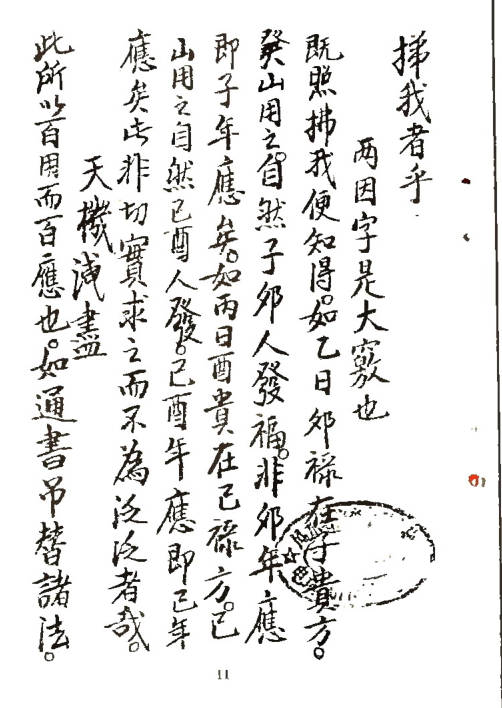 挮我者乎
两因字是大竅也
既照拂我便知得。如乙日卯祿在子貴方。
癸山用之。自然子卯人發福。非卯年應
即子年應矣。如丙日酉貴在巳祿方。巳
山用之自然巳酉人發。巳酉年應即巳年
應矣。此非切實求之而不為泛泛者哉。
天機洩盡
此所以百用而百應也。如通書吊替諸法。
11